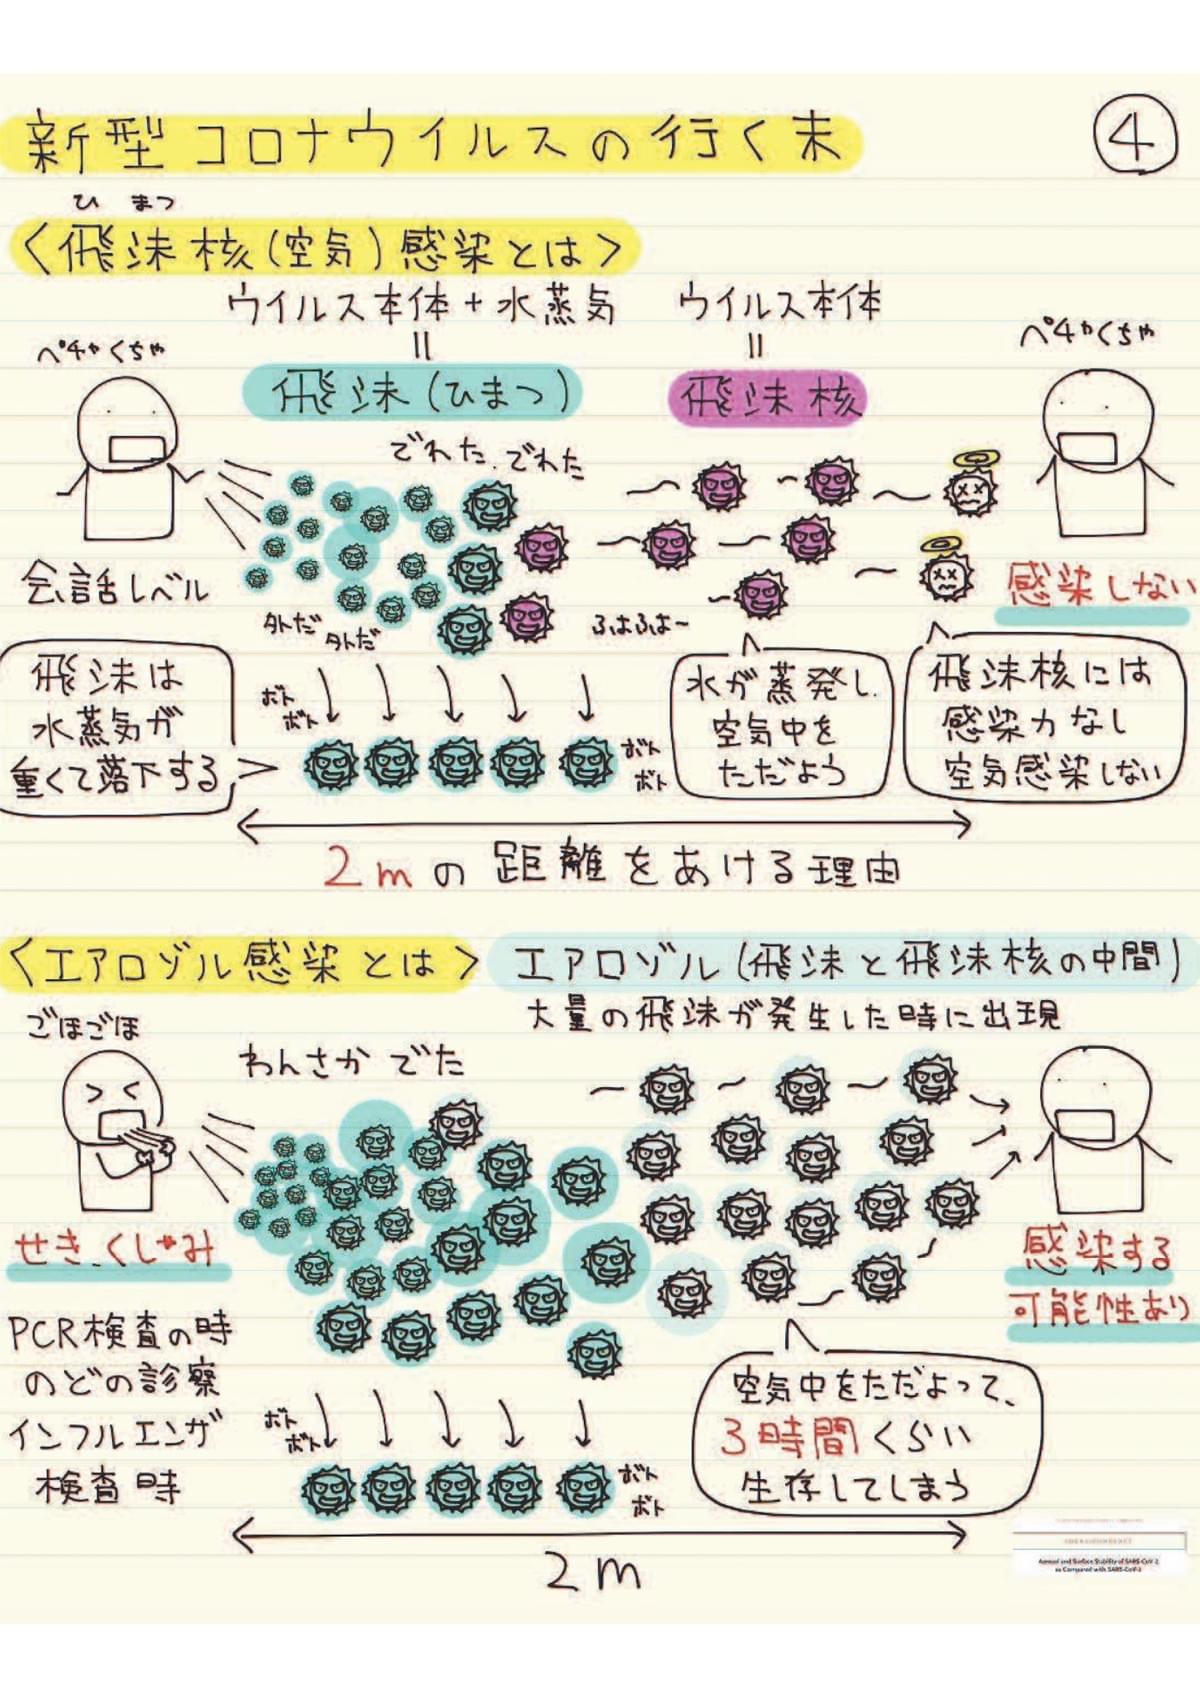 新型コロナウイルスの行く末
④
ひ まつ
〈飛沫核(空気)感染とは〉
ウイルス本体+水蒸気
ウイルス本体
=
=
ペチャくちゃ
飛沫(ひまつ)
飛沫核
ペチャくちゃ
でれた、でれた
会話レベル
外だ
外だ
ふはふは〜
感染しない
飛沫は
水蒸気が
重くて落下する
ボト
ボト
ボト
ボト
水が蒸発し、
空気中を
ただよう
飛沫核には
感染力なし
空気感染しない
2mの距離をあける理由
〈エアロゾル感染とは〉
エアロゾル(飛沫と飛沫核の中間)
大量の飛沫が発生した時に出現
ごほごほ
わんさかでた
せき、くしゃみ
感染する
可能性あり
PCR検査の時
のどの診察
インフルエンザ
検査時
ボト
ボト
ボト
ボト
空気中をただよって、
3時間くらい
生存してしまう
2m
Aerosol and Surface Stability of SARS-CoV-2
as Compared with SARS-CoV-1